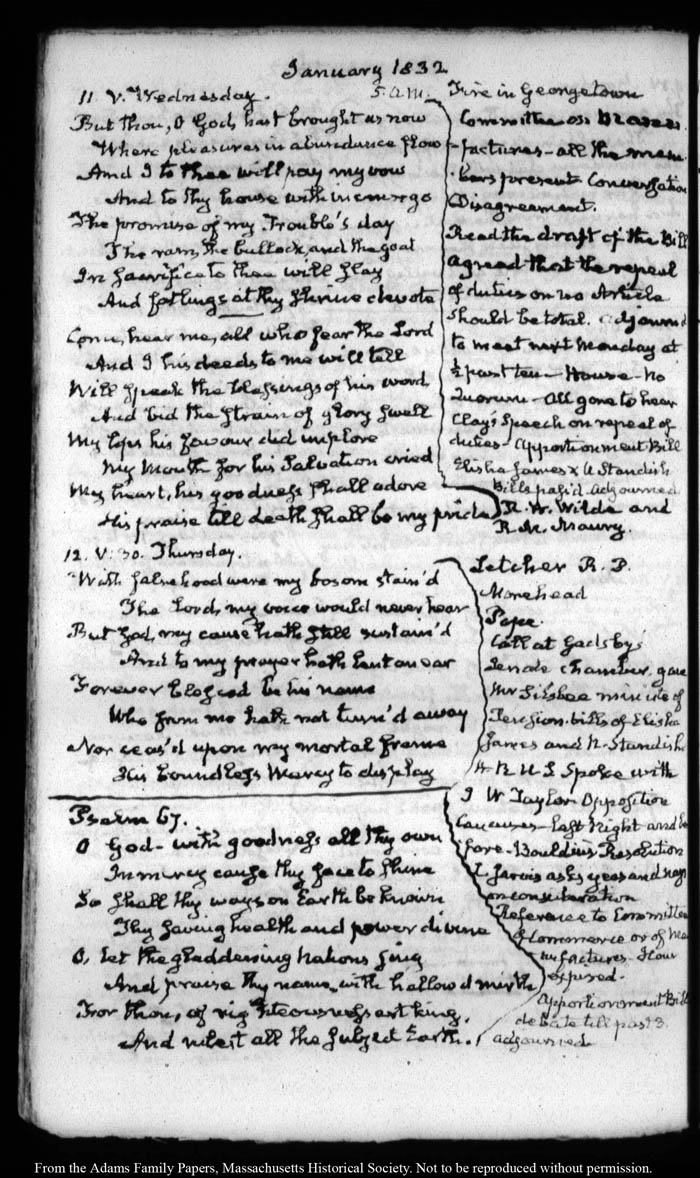 January 1832
11. V. Wednesday. 5. a.m.
But thou, O God, hast brought us now
Where pleasures in abundance flow
And I to thee will pay my vow
And to thy house with incense go
The promise of my Trouble's day
The ram, the bullock, and the goat
In sacrifice to thee will slay
And fatlings at thy shrine devote
Come, hear me, all who fear the Lord
And I his deeds to me will tell
Will speak the blessings of his word
And bid the strain of glory swell
My lips his favour did implore
My mouth for his Salvation cried
My heart, his goodness shall adore
His praise till death shall be my pride
Fire in Georgetown
Committee on
factures - all the mem-
bers present Conversation
Disagreement.
Read the draft of the Bill
agreed that the repeal
of duties on no Article
should be total. adjourned
to meet next Monday at
½ past ten - House - No
Quorum - All gone to hear
Clay's Speech on repeal of
duties - Apportionment Bill
Elisha James & N Standish
Bills pass'd. Adjourned
R. W. Wilde and
R. M. Maury.
12. V:30. Thursday.
With falsehood were my bosom stain'd
The Lord, my voice would never hear
But God, my cause hath still sustain'd
And to my prayer hath lent an ear
Forever blessed be his name
Who from me hath not turn'd away
Nor ceas'd upon my mortal frame
His boundless Mercy to display
Psalm 67.
O God - with goodness all thy own
In mercy cause thy face to shine
So shall thy ways on Earth be known
Thy saving health and power divine
O, let the gladdening Nations sing
And praise thy name, with hallow'd mirth
For thou, of righteousness art king,
And rulest all the subject Earth.
Letcher R. P.
Morehead
Pope.
Call at Gadsby's
Senate chamber. gave
Mr Silsbee minute of
Pension bills of Elisha
James and N. Standish
H. R. U. S. Spoke with
J W Taylor. Opposition
Caucuses - last Night and be
fore - Bouldin's Resolution
L Jarvis asks yeas and nays
on consideration
Reference to Committee
of Commerce or of Ma
nufactures - Hour
expired.
Apportionment Bill
debate till past 3.
adjourned
From the Adams Family Papers, Massachusetts Historical Society. Not to be reproduced without permission.